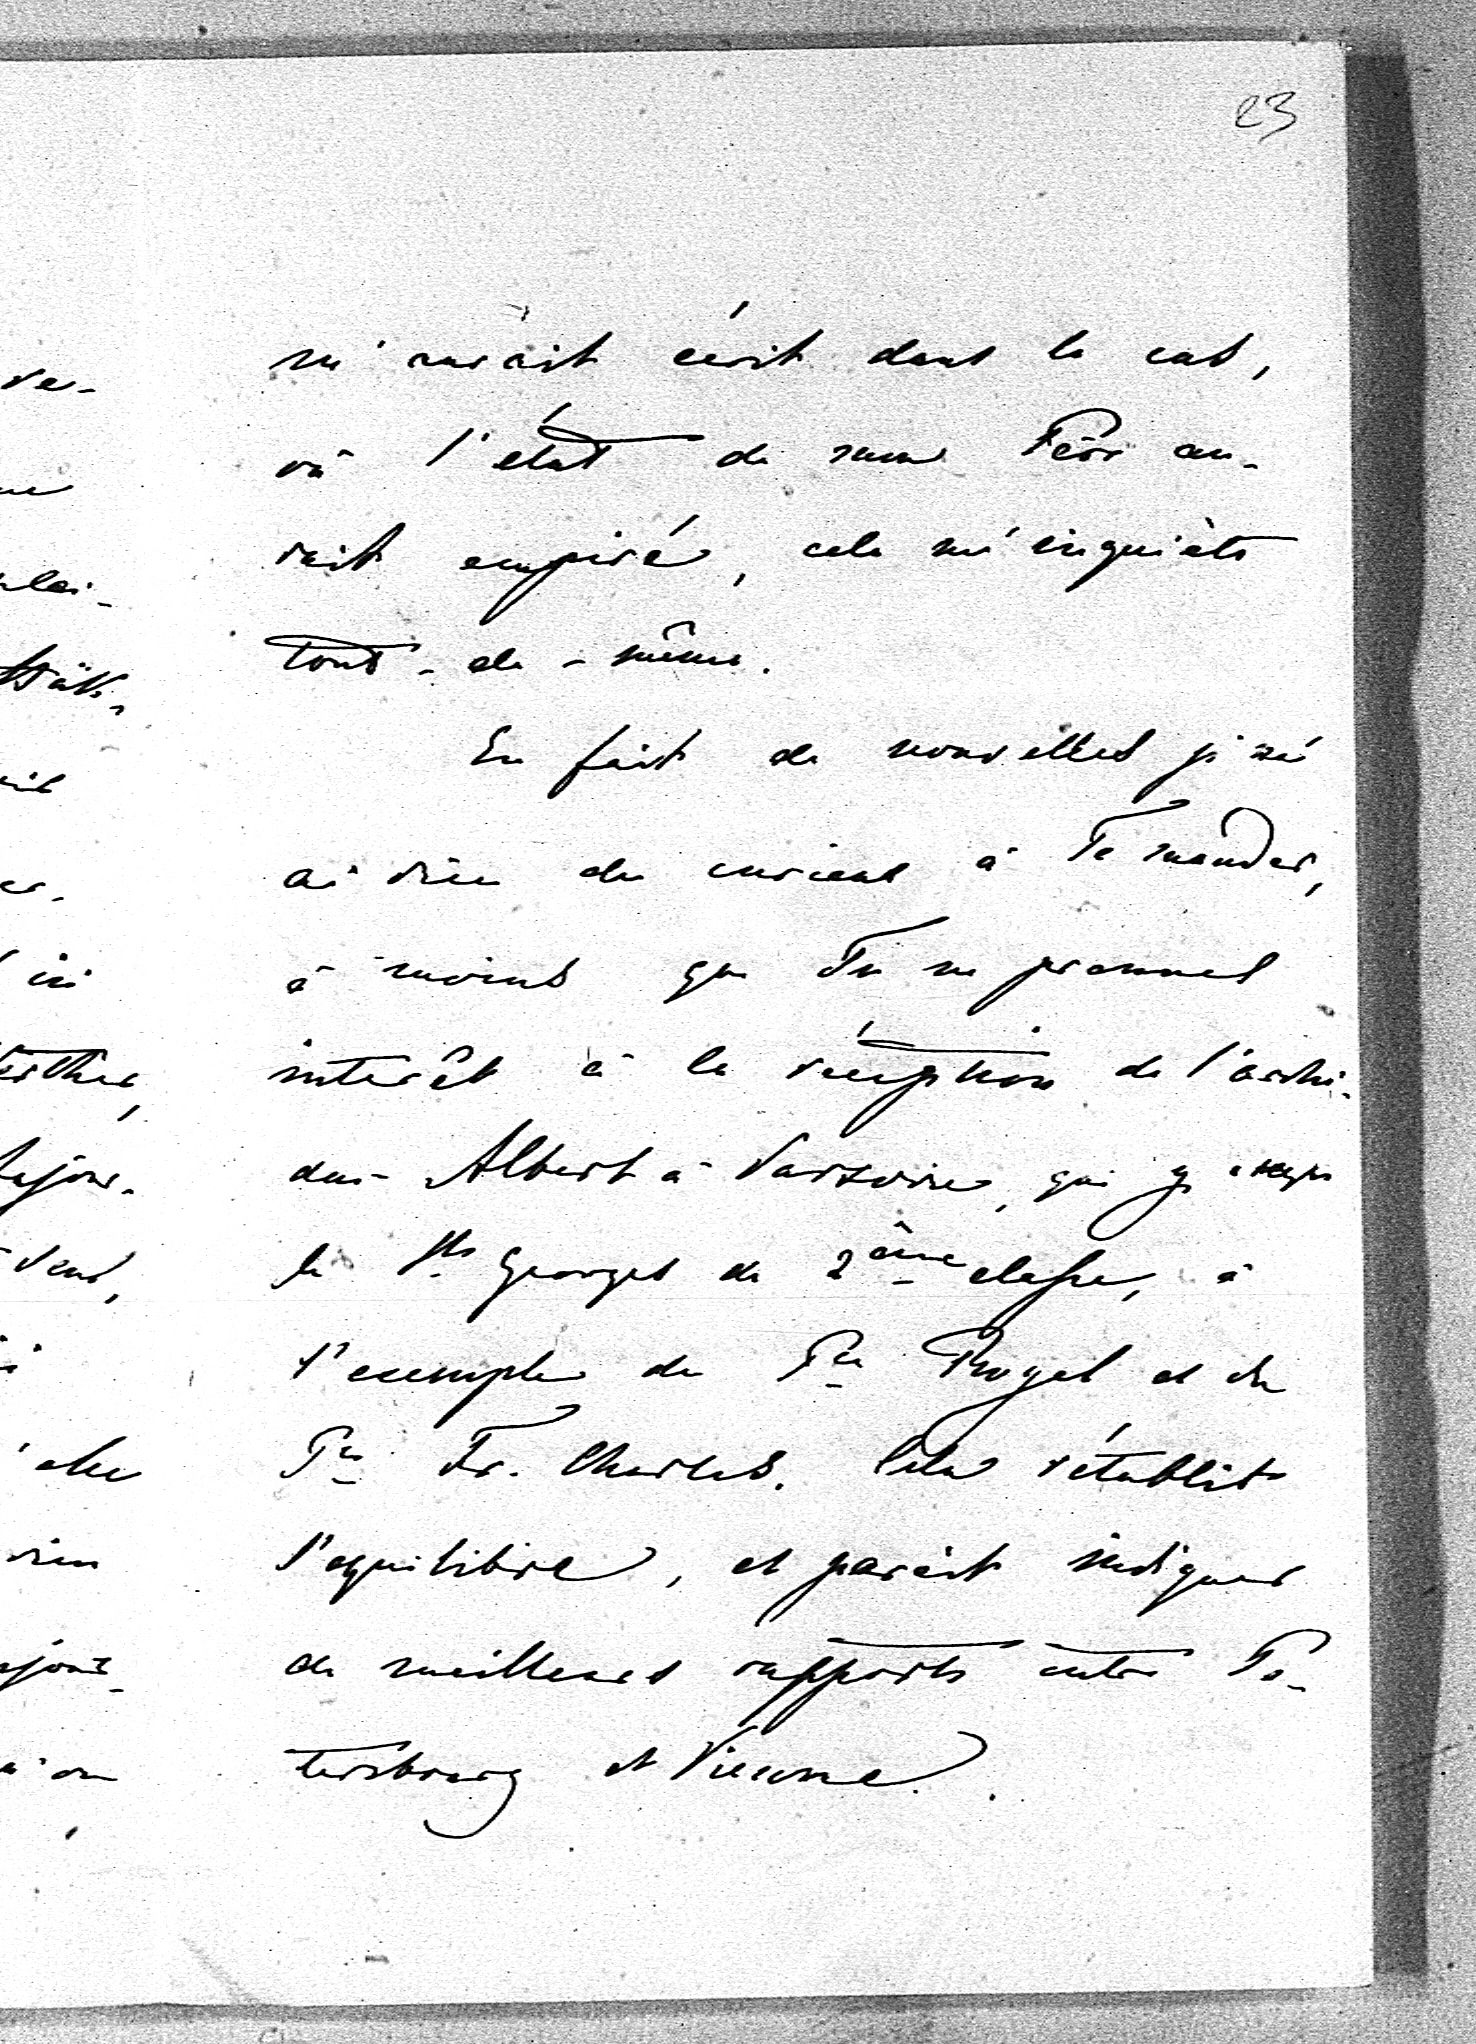 23
m'aurait écrit dans le cas,
où l'état de mon Père au-
rait empiré, cela m'inquiète
tout-de-même.
En fait de nouvelles je n'
ai rien de curieux à Te mander,
à moins que Tu ne prennes
interêt à la réception de l'archi-
duc Albert à Varsovie, qui y a reçu
le St Georges de 2ème classe, à
l'exemple du Pce Royal et du
Pce Fr. Charles. Cela rétablit
l'equilibre, et paraît indiquer
de meilleurs rapports entre Pé-
tersbourg et Vienne.